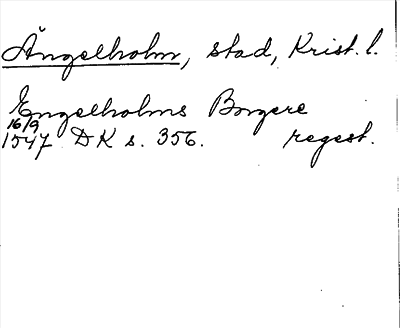 Ängelholm, stad, Krist. l.
Engelholms Borgere
16/9
1547 DK s. 356. regest.